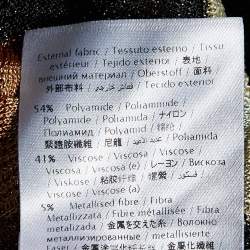 External fabric / Tessuto esterno / Tissu
extérieur / Tejido exterior / 表地
внешний материал / Oberstoff / 面料
外部布料 / / Tecido exterior
54% Polyamide / Poliammide /
Polyamide / Poliamida / ナイロン
Полиамид / Polyamid / 锦纶
緊聰胺纖維 / 尼龍 / Poliamida
41% Viscose / Viscosa /
Viscose / Viscosa (e) / レーヨン / Вискоза
/ Viskose / 粘胶纤维 / 嫘縈 /
Viscose / Viscose (a)
5% Metallised fibre / Fibra
Metallizzata / Fibre métallisée / Fibra
metalizada / 金属を交えた糸 / Волокно
металлизированные / metallisierte
Faser / 金属 / 金屬化纖維